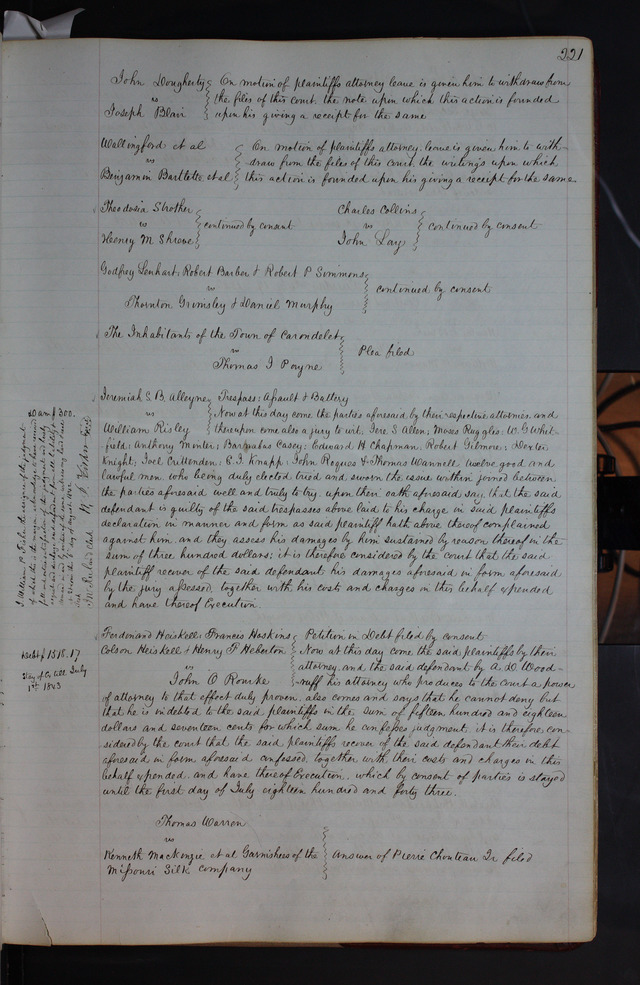 221
John Dougherty On motion of plaintiffs attorney leave is given him to withdraw from
vs the files of this court, the note upon which this action is founded
Joseph Blair upon his giving a receipt for the same
Wallingford et al On motion of plaintiffs attorney, leave is given him to with-
vs draw from the files of this court, the writings upon which
Benjamin Bartlette et al this action is founded upon his giving a receipt for the same
Theodosia Strother
vs continued by consent
Henry M Shreve
Charles Collins
vs continued by consent
John Lay
Godfrey Lenhart, Robert Barber & Robert P Simmons
vs continued by consent
Thornton Grimsley & Daniel Murphy
The Inhabitants of the Town of Carondelet
vs Plea filed
Thomas J Payne
Dam $300.
Jeremiah S. B. Alleyne Trespass; Assault & Battery
vs Now at this day come the parties aforesaid, by their respective attornies, and
William Risley thereupon come also a jury to wit; Jere S Allen; Moses Ruggles; W. G Whit-
field; Anthony Menter; Barnabas Casey; Edward H Chapman, Robert Gilmore; Dexter
Knight; Joel Crittenden; E. J. Knapp; John Rogues & Thomas Wannell twelve good and
lawful men, who being duly elected tried and sworn the issue within joined between
the parties aforesaid well and truly to try, upon their oath aforesaid say, that the said
defendant is guilty of the said trespasses above laid to his charge in said plaintiffs
declaration in manner and form as said plaintiff hath above thereof complained
against him, and they assess his damages by him sustained by reason thereof in the
sum of three hundred dollars; it is therefore considered by the court that the said
plaintiff recover of the said defendant his damages aforesaid in form aforesaid
by the jury assessed, together with his costs and charges in this behalf expended
and have thereof Execution.
Debt $1518.17
Stay of Ex till July
1st 1843
Ferdenand Heiskell, Francis Hoskins Petition in Debt filed by consent
Colson Heiskell & Henry F Heberton Now at this day come the said plaintiffs by their
vs attorney, and the said defendant by A. D. Wood-
John O Rourke ruff his attorney who produces to the Court a power
of attorney to that effect duly proven, also comes and says that he cannot deny but
that he is indebted to the said plaintiffs in the sum of fifteen hundred and eighteen
dollars and seventeen cents for which sum he confesses judgment, it is therefore con-
sidered by the court that the said plaintiffs recover of the said defendant their debt
aforesaid in form aforesaid confessed, together with their costs and charges in this
behalf expended, and have thereof Execution, which by consent of parties is stayed
until the first day of July eighteen hundred and forty three.
Thomas Warren
vs
Kenneth MacKenzie et al Garnishees of the Answer of Pierre Chouteau Jr filed
Missouri Silk Company